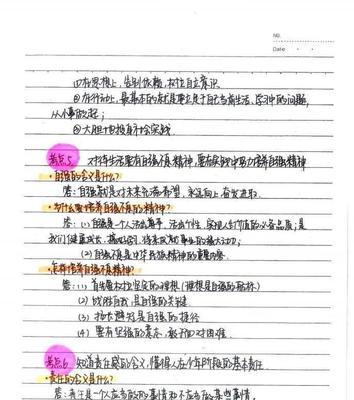 NO.
Date
①在思想上,告别依赖,树立自立意识
②在行动上,最基本的就是要立足于自己当前生活、学习中的问题,
从小事做起;
③大胆地投身社会实践
考点5 对待生活要有自强不息精神,要有实际中努力培养自强精神
·自强的含义是什么?
答:自强就是对未来充满希望,永远向上,奋发进取.
·为什么要培养自强不息的精神?
答:(1)自强是一个人活出尊严、活出个性、实现人生价值的必备品质;是
我们健康成长、努力学习、将来成就事业的强大动力;
(2)自强不息是中华民族精神的重要内容.
·怎样培养自强不息精神?
答:(1)首先要树立坚定的理想(理想是自强的航标)
(2)战胜自我,是自强的关键
(3)扬长避短是自强的捷径
(4)要有坚强的意志,敢于面对困难.
考点6 知道责任感的含义,懂得人在少年阶段的基本责任.
·责任的含义是什么?
答:责任是一个人应当做的事情和不应当做某些事情.